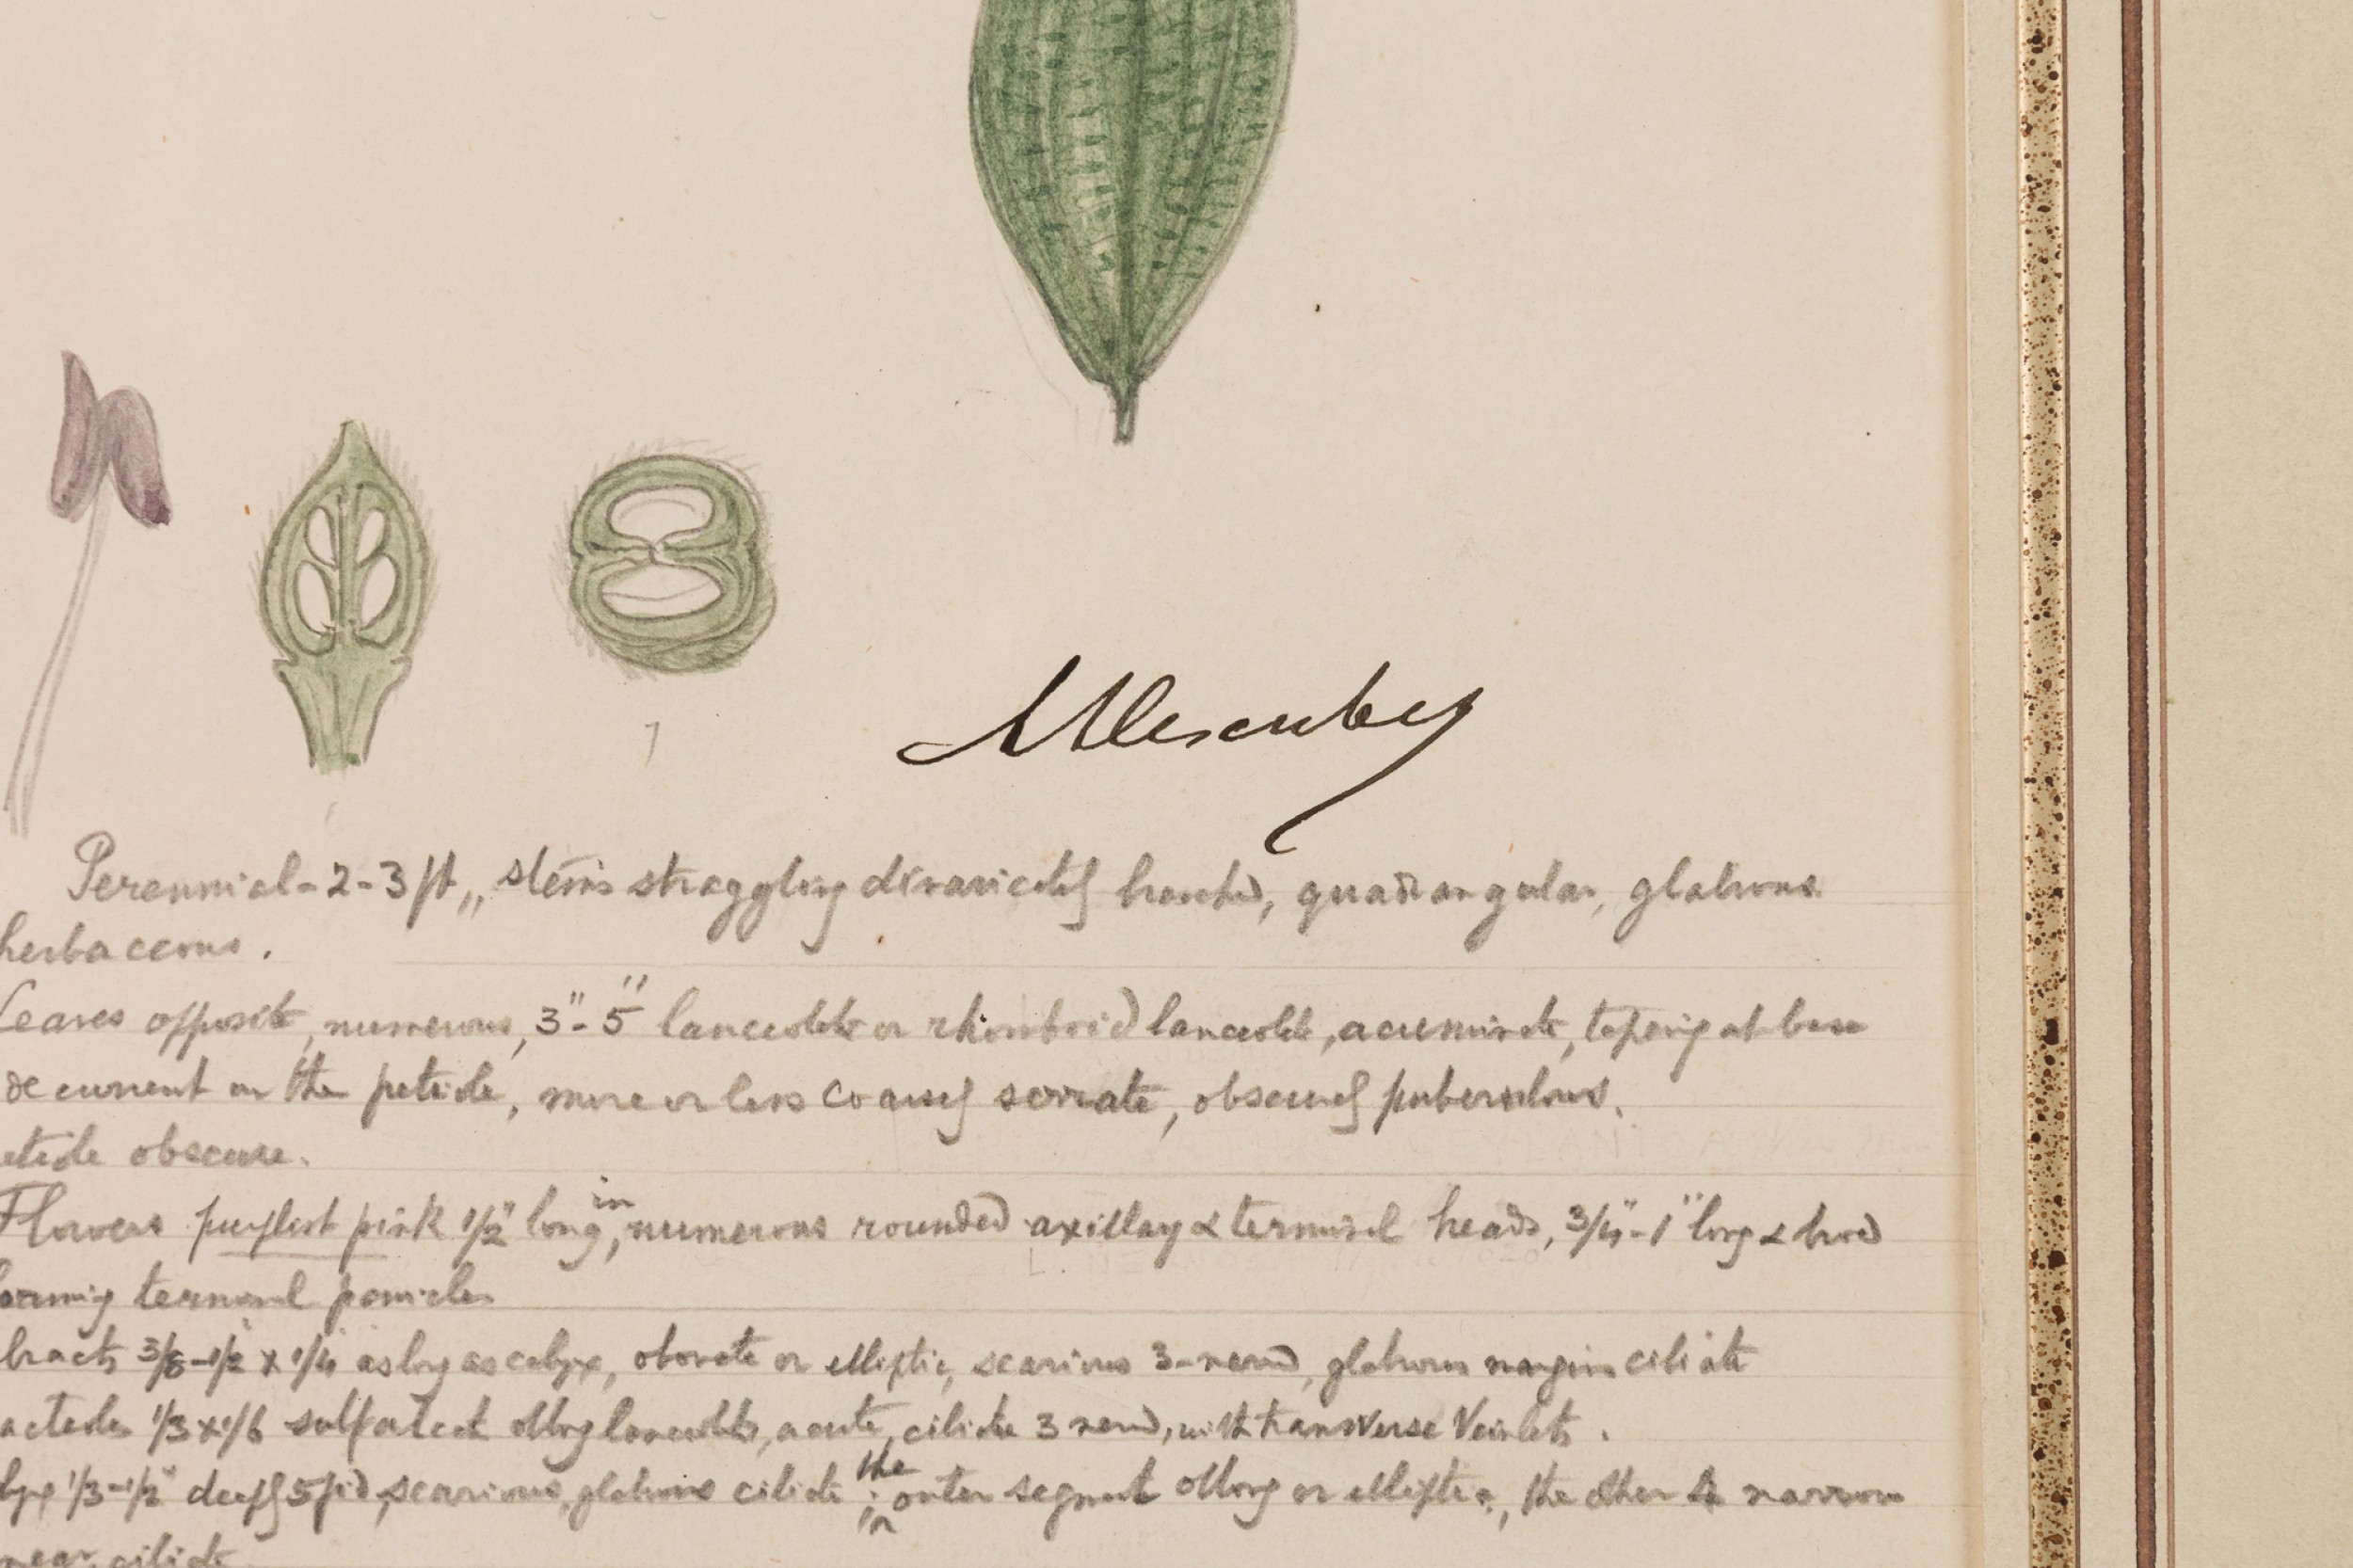 7
Perennial - 2-3 ft,, stems straggling divaricately branched, quadrangular, glabrous
herbaceous.
Leaves opposite, numerous, 3"-5" lanceolate or rhomboid lanceolate, acuminate, tapering at base
decurrent on the petiole, more or less coarsely serrate, obscurely puberulous.
etiole obscure.
Flowers purplish pink 1/2" long, in numerous rounded axillary & terminal heads, 3/4"-1" long & broad
orming terminal panicles
bracts 3/8-1/2 x 1/4 as long as calyx, obovate or elliptic, scarious 3-nerved, glabrous margins ciliate
acteoles 1/3 x 1/6 oblong lanceolate, acute, ciliate 3 nerved, with transverse veinlets.
lyx 1/3-1/2" deeply 5 fid, scarious, glabrous ciliate; the outer segment oblong or elliptic, the other 4 narrow
near, ciliate